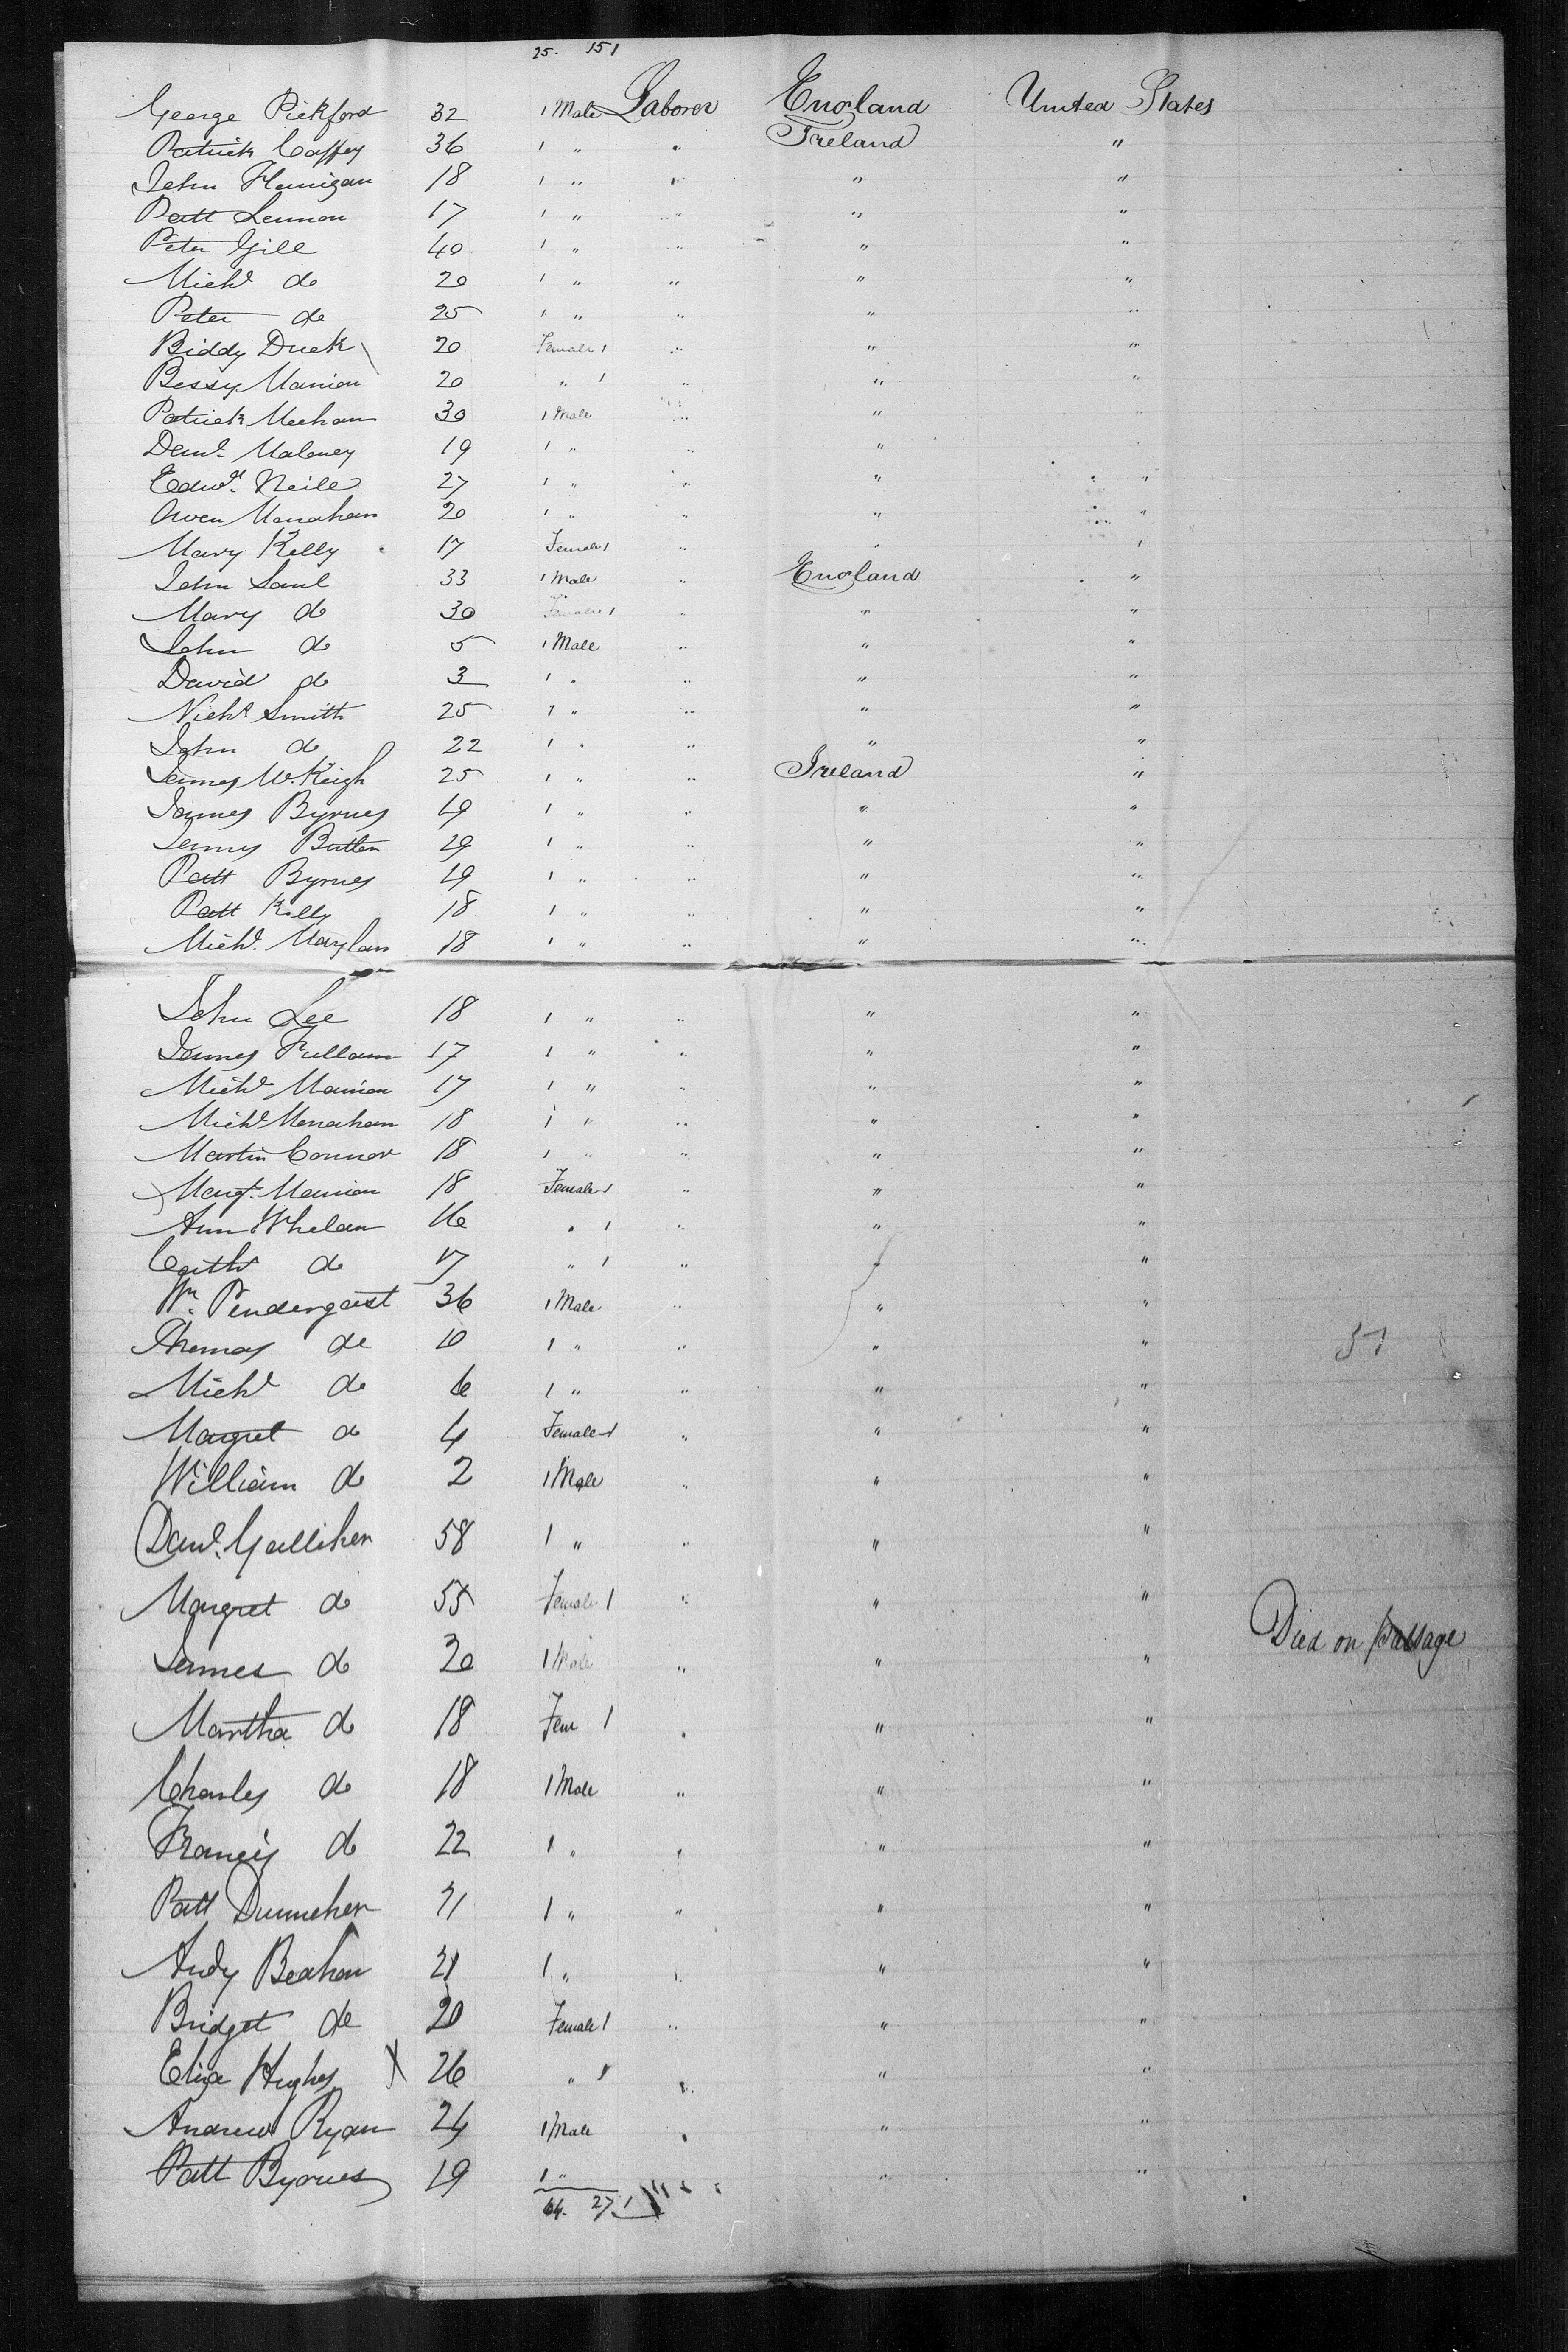 25. 151
George Pickford 32 1 Male Laborer England United States
Patrick Caffey 36 1 " " Ireland "
John Flanigan 18 1 " " " "
Patt Lennon 17 1 " " " "
Peter Gill 40 1 " " " "
Michl do 20 1 " " " "
Peter do 25 1 " " " "
Biddy Duck 20 Female 1 " " "
Bessy Manion 20 " 1 " " "
Patrick Meehan 30 1 Male " " "
Danl. Maloney 19 1 " " "
Edwd. Neile 27 1 " " " "
Owen Monahan 20 1 " " " "
Mary Kelly 17 Female 1 " " "
John Saul 33 1 Male " England "
Mary do 30 Female 1 " " "
John do 5 1 Male " " "
David do 3 1 " " " "
Nichs Smith 25 1 " " " "
John do 22 1 " " " "
James McKeigh 25 1 " " Ireland "
James Byrnes 19 1 " " " "
James Butler 29 1 " " " "
Patt Byrnes 19 1 " " " "
Patt Kelly 18 1 " " " "
Michl. Maylan 18 1 " " " "
John Lee 18 1 " " " "
James Fullam 17 1 " " " "
Michl Manion 17 1 " " " "
Michl Monahan 18 1 " " " "
Martin Connor 18 1 " " " "
Margt. Manion 18 Female 1 " " "
Ann Whelan 16 " 1 " " "
do 17 " 1 " " "
Wm. Pendergast 36 1 Male " " "
Thomas do 10 1 " " " "
Michl do 6 1 " " " "
Margret do 4 Female 1 " " "
William do 2 1 Male " " "
Danl. Galliher 58 1 " " " "
Margret do 55 Female 1 " " "
James do 20 1 Male " " " Died on passage
Martha do 18 Fem 1 " " "
Charles do 18 1 Male " " "
Francis do 22 1 " " " "
Patt Dunneher 21 1 " " " "
Andy Beahan 21 1 " " " "
Bridget do 20 Female 1 " " "
Eliza Hughes X 26 " 1 " " "
Andrew Ryan 24 1 Male " " "
Patt Byrnes 19 1 " " "
64. 27 1